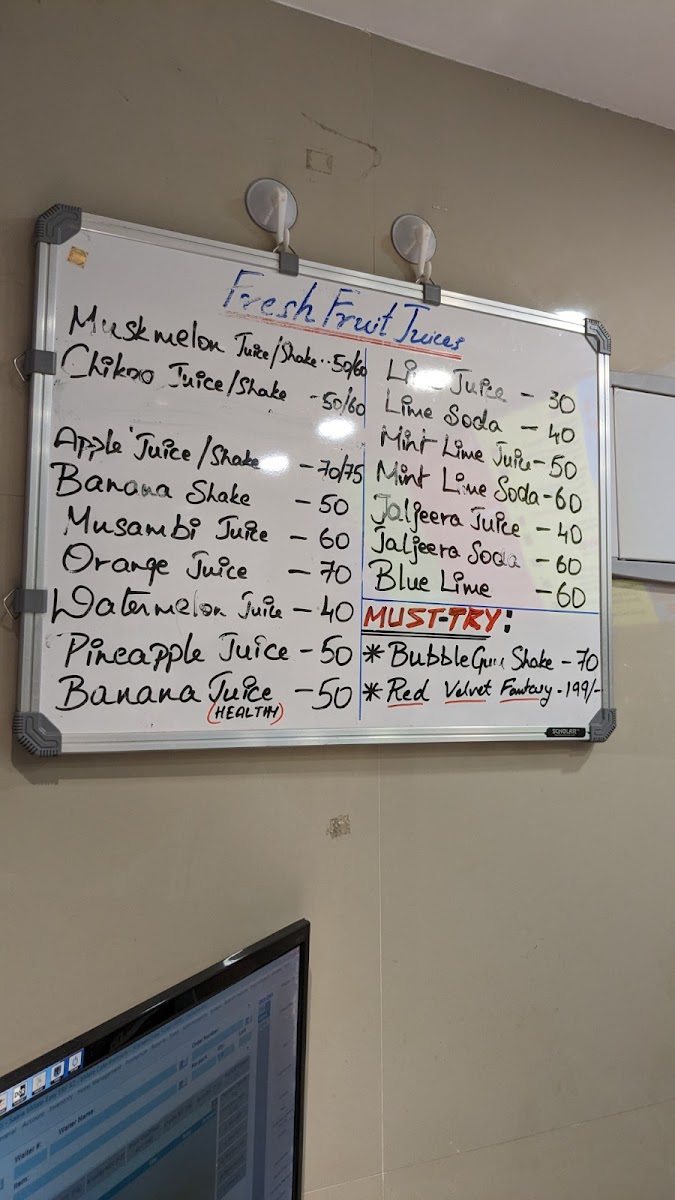 Fresh Fruit Juices
Muskmelon Juice/Shake..50/60
Chikoo Juice/Shake -50/60
Apple Juice/Shake -70/75
Banana Shake -50
Musambi Juice - 60
Orange Juice - 70
Watermelon Juice - 40
Pineapple Juice - 50
Banana Juice - 50
(HEALTHY)
Lime Juice - 30
Lime Soda - 40
Mint Lime Juice - 50
Mint Lime Soda - 60
Jaljeera Juice - 40
Jaljeera Soda - 60
Blue Lime - 60
MUST-TRY:
* BubbleGum Shake - 70
* Red Velvet Fantasy - 199/-
SCHOLAR
Order Number
Waiter #:
Waiter Name
Item: